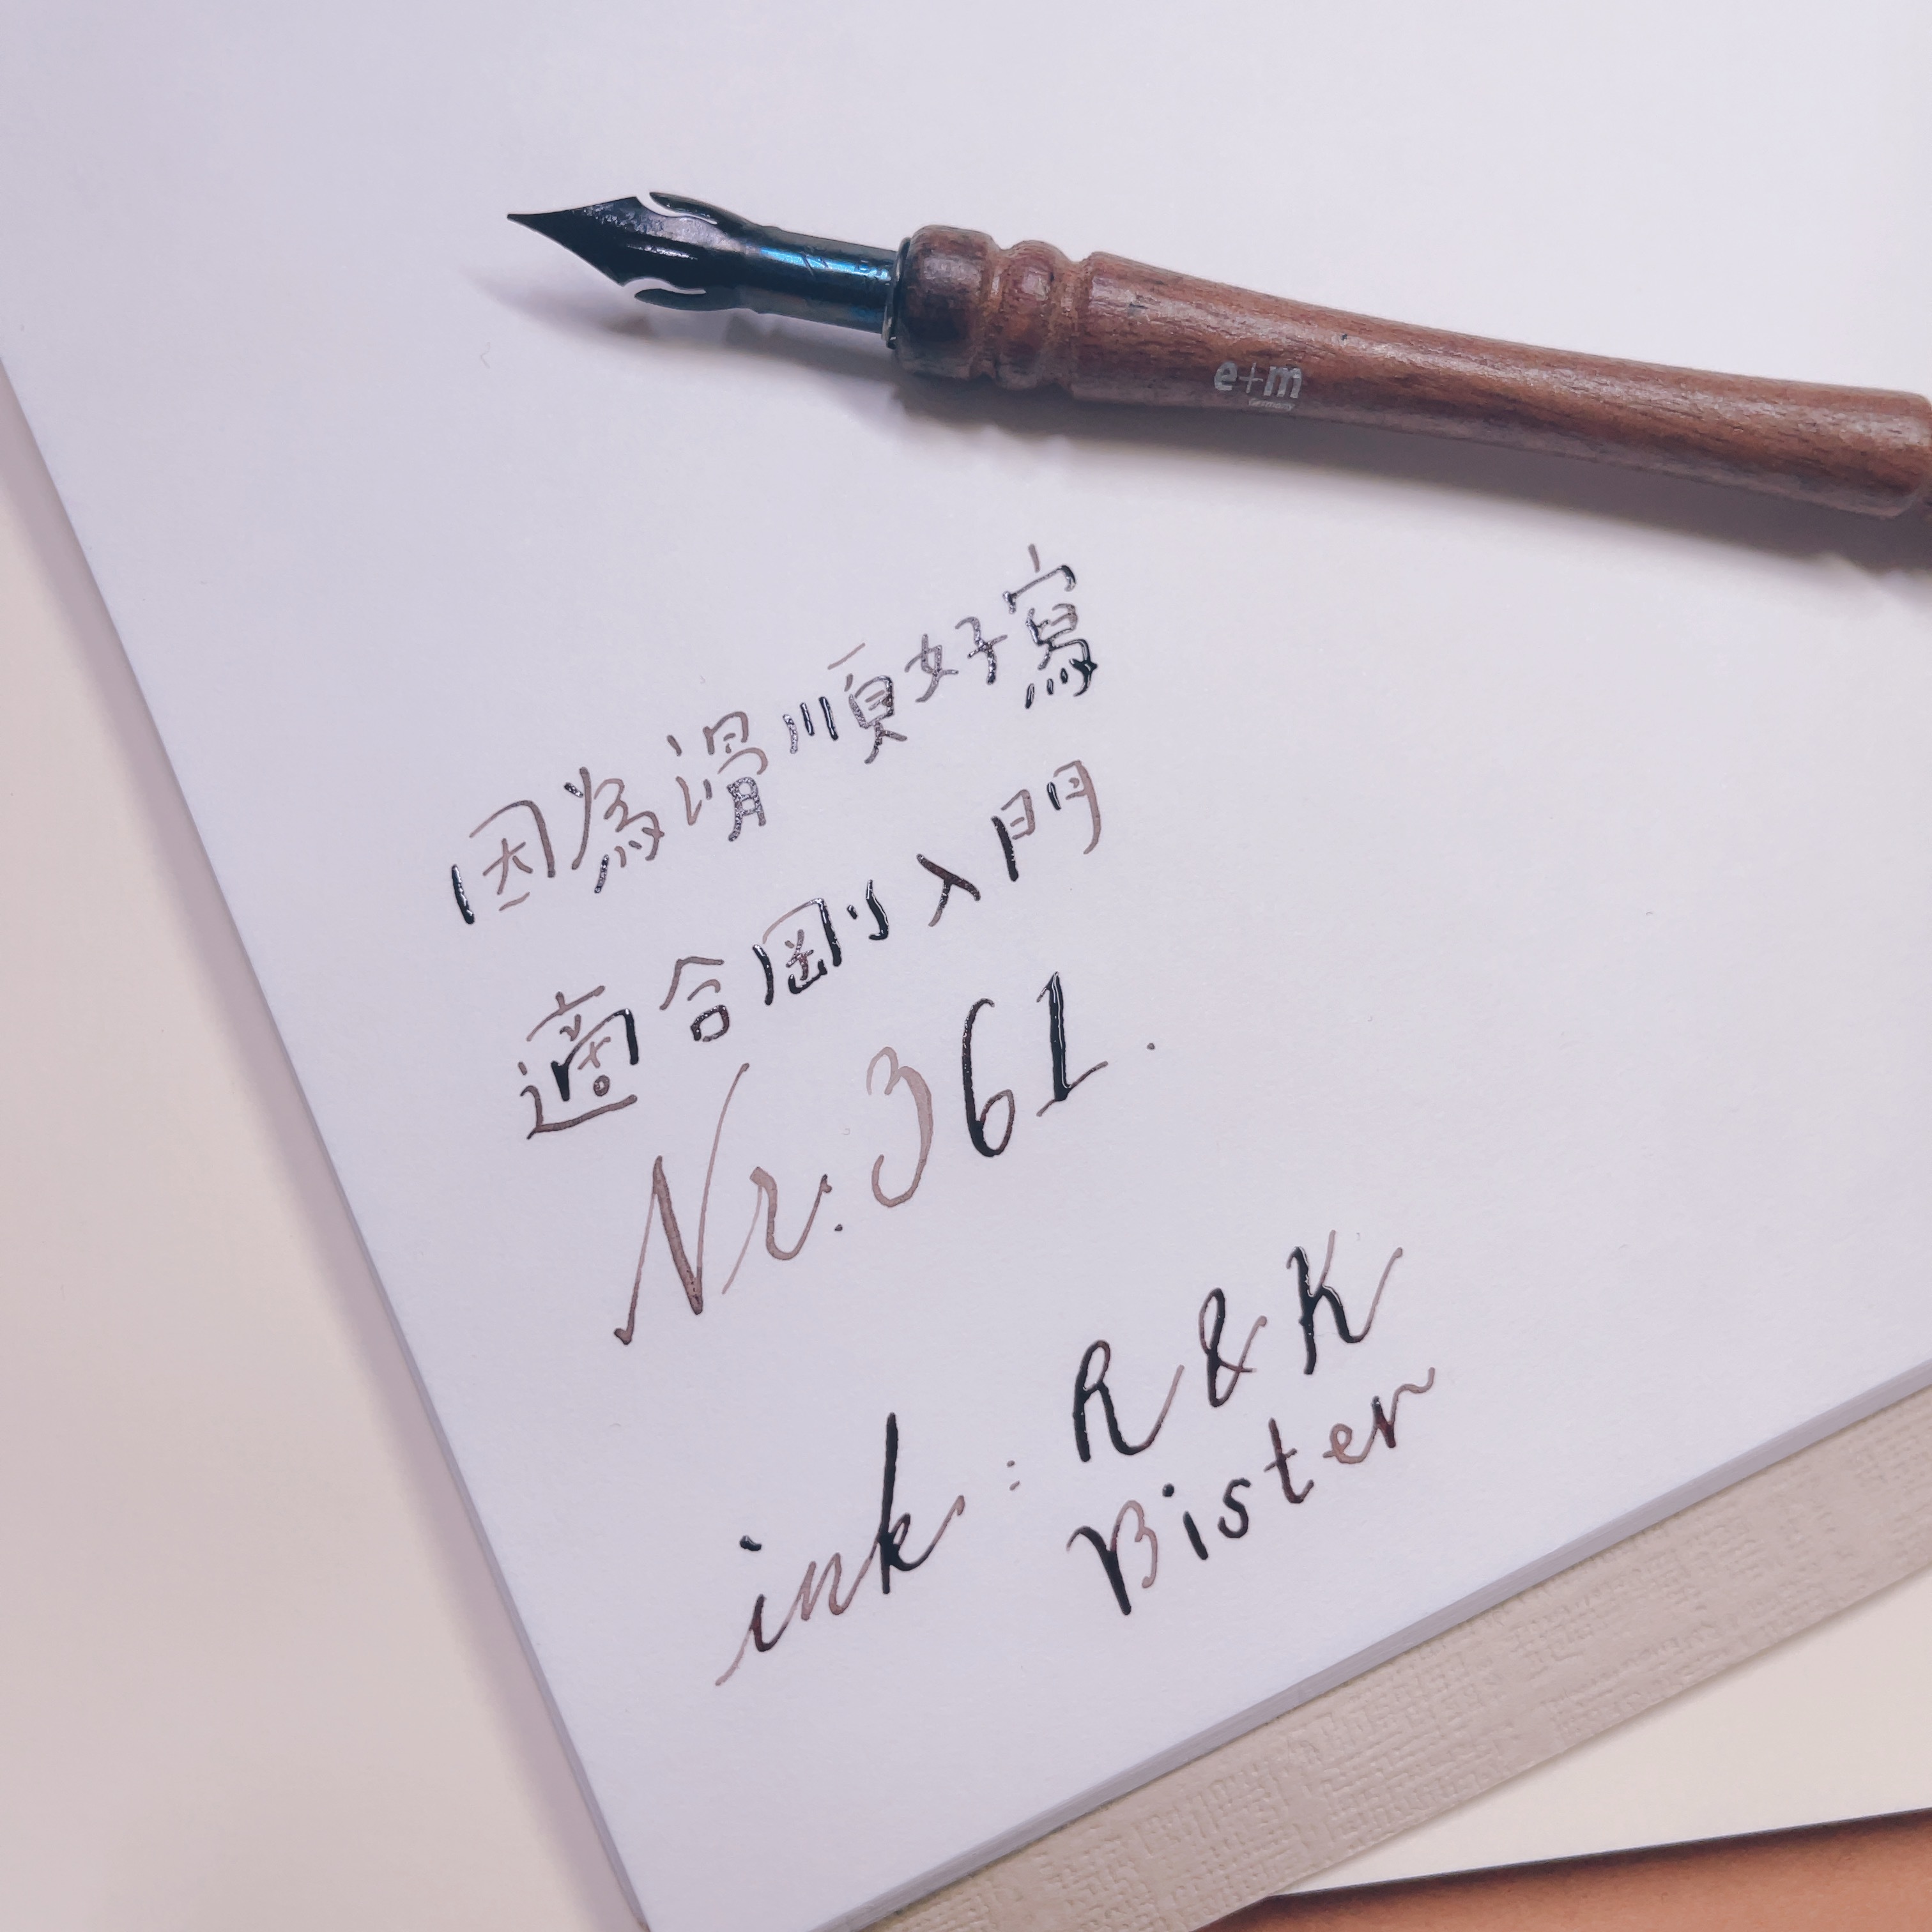 e+m
Germany
因為滑順好寫
適合剛入門
Nr. 361.
ink: R & K
Bister